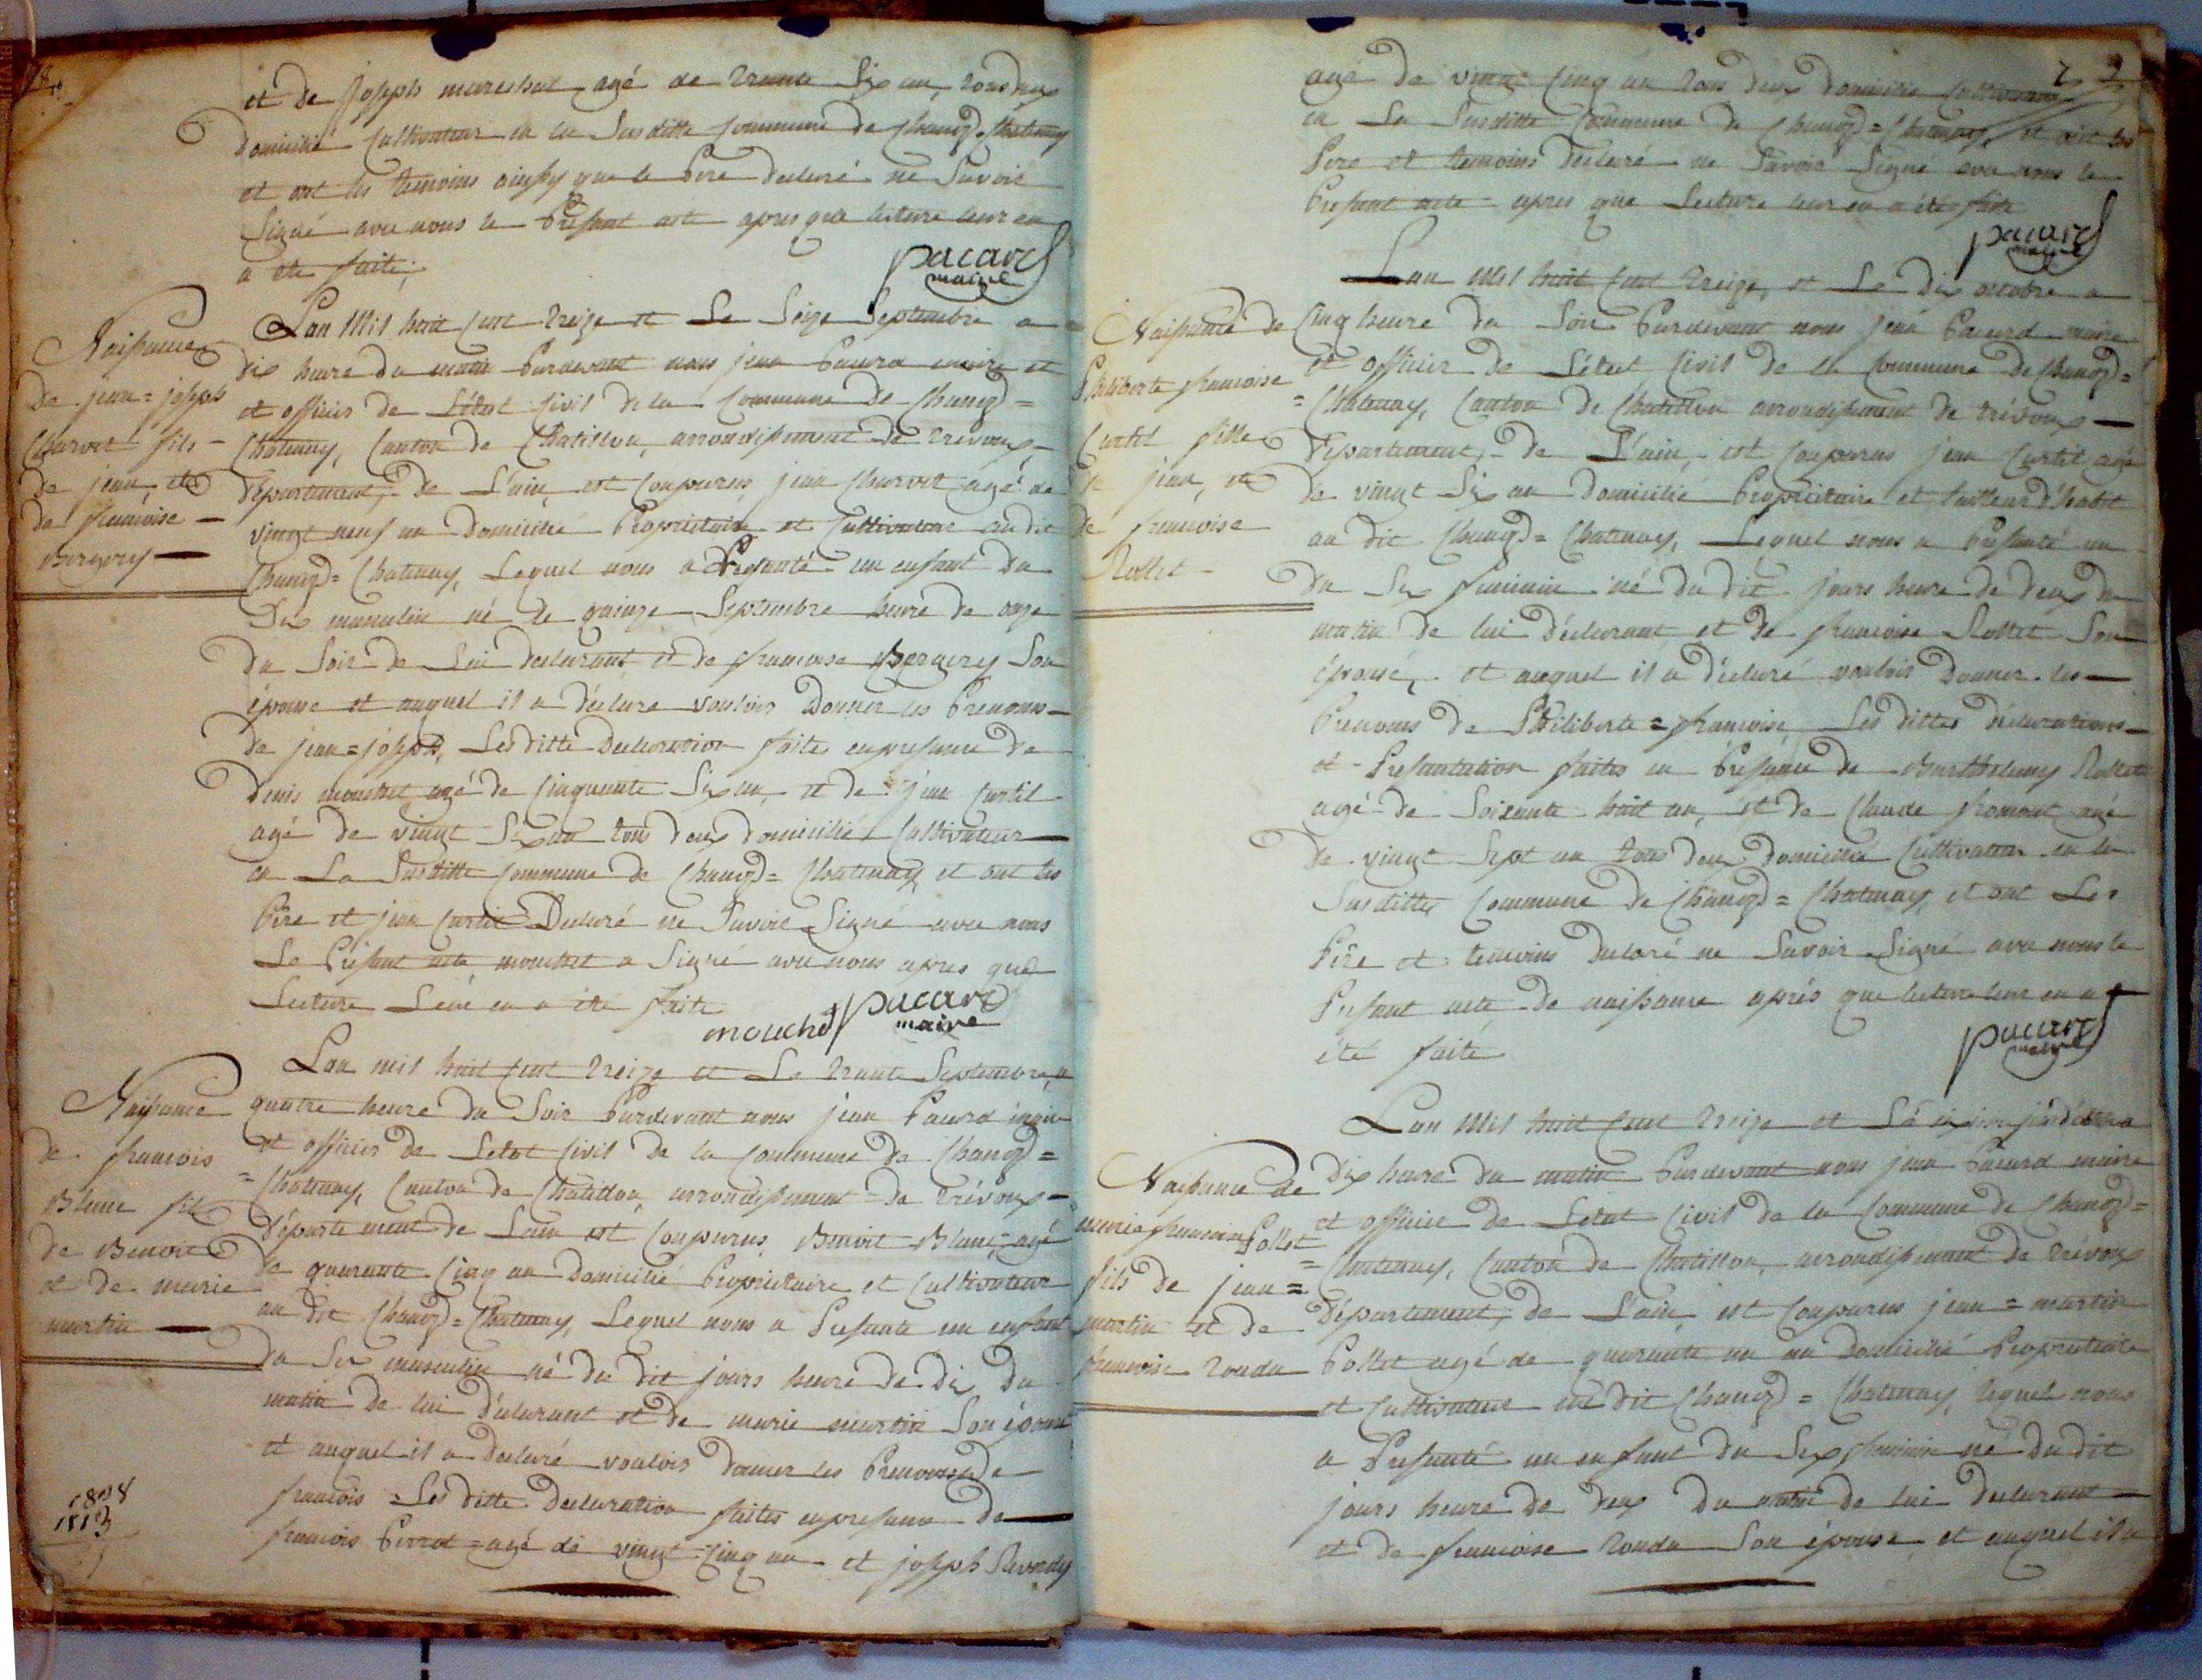 et de joseph mareshal agé de trante six an, tous deux
domicilié Cultivateur en la Susditte Commune de Chanoz=Chatenay
et ont les temoins ainsy que le Pere declaré ne Savoir
Signé avec nous le Présent acte apres que lecture leur en
a été faite,
pacard
maire
Naissance
de jean=joseph
Charvet fils
de jean et
de francoise
Bergerey
Lan Mil huit Cent treize et Le Seize Septembre a
dix heure du matin Pardevant nous jean Pacard maire et
et officier de L'état Civil de la Commune de Chanoz=
Chatenay, Canton de Chatillon, arrondissement de trevoux
Département, de L'ain, est Comparus jean Charvet agé de
vingt neuf an Domicilié Propriétaire et Cultivateur au dit
Chanoz=Chatenay, Lequel nous a Présanté un enfant du
Sex masculin né le quinze Septembre heure de onze
du Soir de Lui declarant et de francoise Bergerey Son
épouse et auquel il a déclaré vouloir Donner les Prenoms
de jean=joseph, Lesditte Declaration faites en presance de
denis mouchet agé de Cinquante Six an, et de jean Curtil
agé de vingt Six an tous deux domicilié Cultivateur
en La Susditte Commune de Chanoz=Chatenay et ont les
Pére et jean Curtil Declaré ne Savoir Signé avec nous
Le Présent acte mouchet a Signé avec nous apres que
Lecture Leur en a été faite
mouchet pacard
maire
Naissance
de francois
Blanc fils
de Benoit
et de marie
martin
Lan mil huit Cent treize et Le trante Septembre, a
quatre heure du Soir Pardevant nous jean Pacard maire
et officier de Letat Civil de la Commune de Chanoz=
=Chatenay, Canton de Chatillon, arrondissement de trévoux
Département de Lain est Comparus, Benoit Blanc, agé
de quarante Cinq an Domicilié Propriétaire et Cultivateur
au dit Chanoz=Chatenay, Lequel nous a Présante un enfant
du Sex masculin né du dit jours heure de dix du
matin de lui déclarant et de marie martin Son épouse
et auquel il a declaré vouloir donner les Prenoms de
francois Lesditte Declaration faites en presance de
francois Perrot agé de vingt Cinq an et joseph Revordy
1808
1813
agé de vingt Cinq an tous deux domicilié Cultivateur
en La Susditte Commune de Chanoz=Chatenay, et ont les
Pere et temoins declaré ne Savoir Signé avec nous le
Présant acte apres que Lecture leur en a été faite
pacard
maire
Naissance de
Philiberte francoise
Curtil fille
de jean, et
de francoise
Rollet
Lan Mil huit Cent treize, et Le Dix octobre a
Cinq heure du Soir Pardevant nous jean Pacard maire
et officier de L'état Civil de la Commune de Chanoz=
=Chatenay, Canton de Chatillon arrondissement de trévoux
Département, de L'ain, est Comparus jean Curtil agé
de vingt Six an Domicilié Propriétaire et tailleur d'habit
au dit Chanoz=Chatenay, Lequel nous a Présanté un
du Sex feminin né du dit jours heure de deux du
matin de lui Déclarant, et de francoise Rollet Son
épouse, et auquel il a déclaré vouloir Donner les
Prenoms de Philiberte=francoise, Les dittes déclarations
et Presantation faites en Présance de Barthelemy Rollet
agé de Soixante huit an, et de Claude fromont agé
de vingt Sept an tous deux domicilié Cultivateur en la
Susditte Commune de Chanoz=Chatenay, et ont Les
Pére et temoins declaré ne Savoir Signé avec nous le
Présant acte de naissance aprés que lecture leur en a
été faite
pacard
maire
Naissance de
marie francoise Pollet
fils de jean=
martin et de
francoise tondu
Lan Mil huit Cent treize et Le
Dix heure du matin Pardevant nous jean Pacard maire
et officier de Letat Civil de la Commune de Chanoz=
=Chatenay, Canton de Chatillon, arrondissement de trévoux
Département, de L'ain, est Comparus jean=martin
Pollet agé de quarante un an Domicilié Propriétaire
et Cultivateur au dit Chanoz=Chatenay, lequel nous
a Présanté un enfant du Sex feminin né du dit
jours heure de deux du matin de lui declarant
et de francoise tondu Son épouse et auquel il a